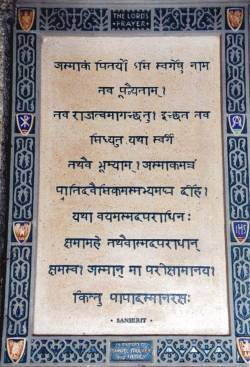 THE LORD'S
PRAYER
अस्माकं पितर्यो ऽसि स्वर्गेषु नाम
तव पूज्यताम्।
तव राजत्वमागच्छतु। इच्छत तव
सिध्यतु यथा स्वर्गे
तथैव भूम्याम्। अस्माकमन्नं
प्रातिदैविकमस्मभ्यमद्य देहि।
यथा वयमस्मदपराधिनः
क्षमामहे तथैवास्मदपराधान्
क्षमस्व। अस्मान् मा परीक्षामानय।
किन्तु पापादस्मानरक्ष।
· SANSKRIT ·